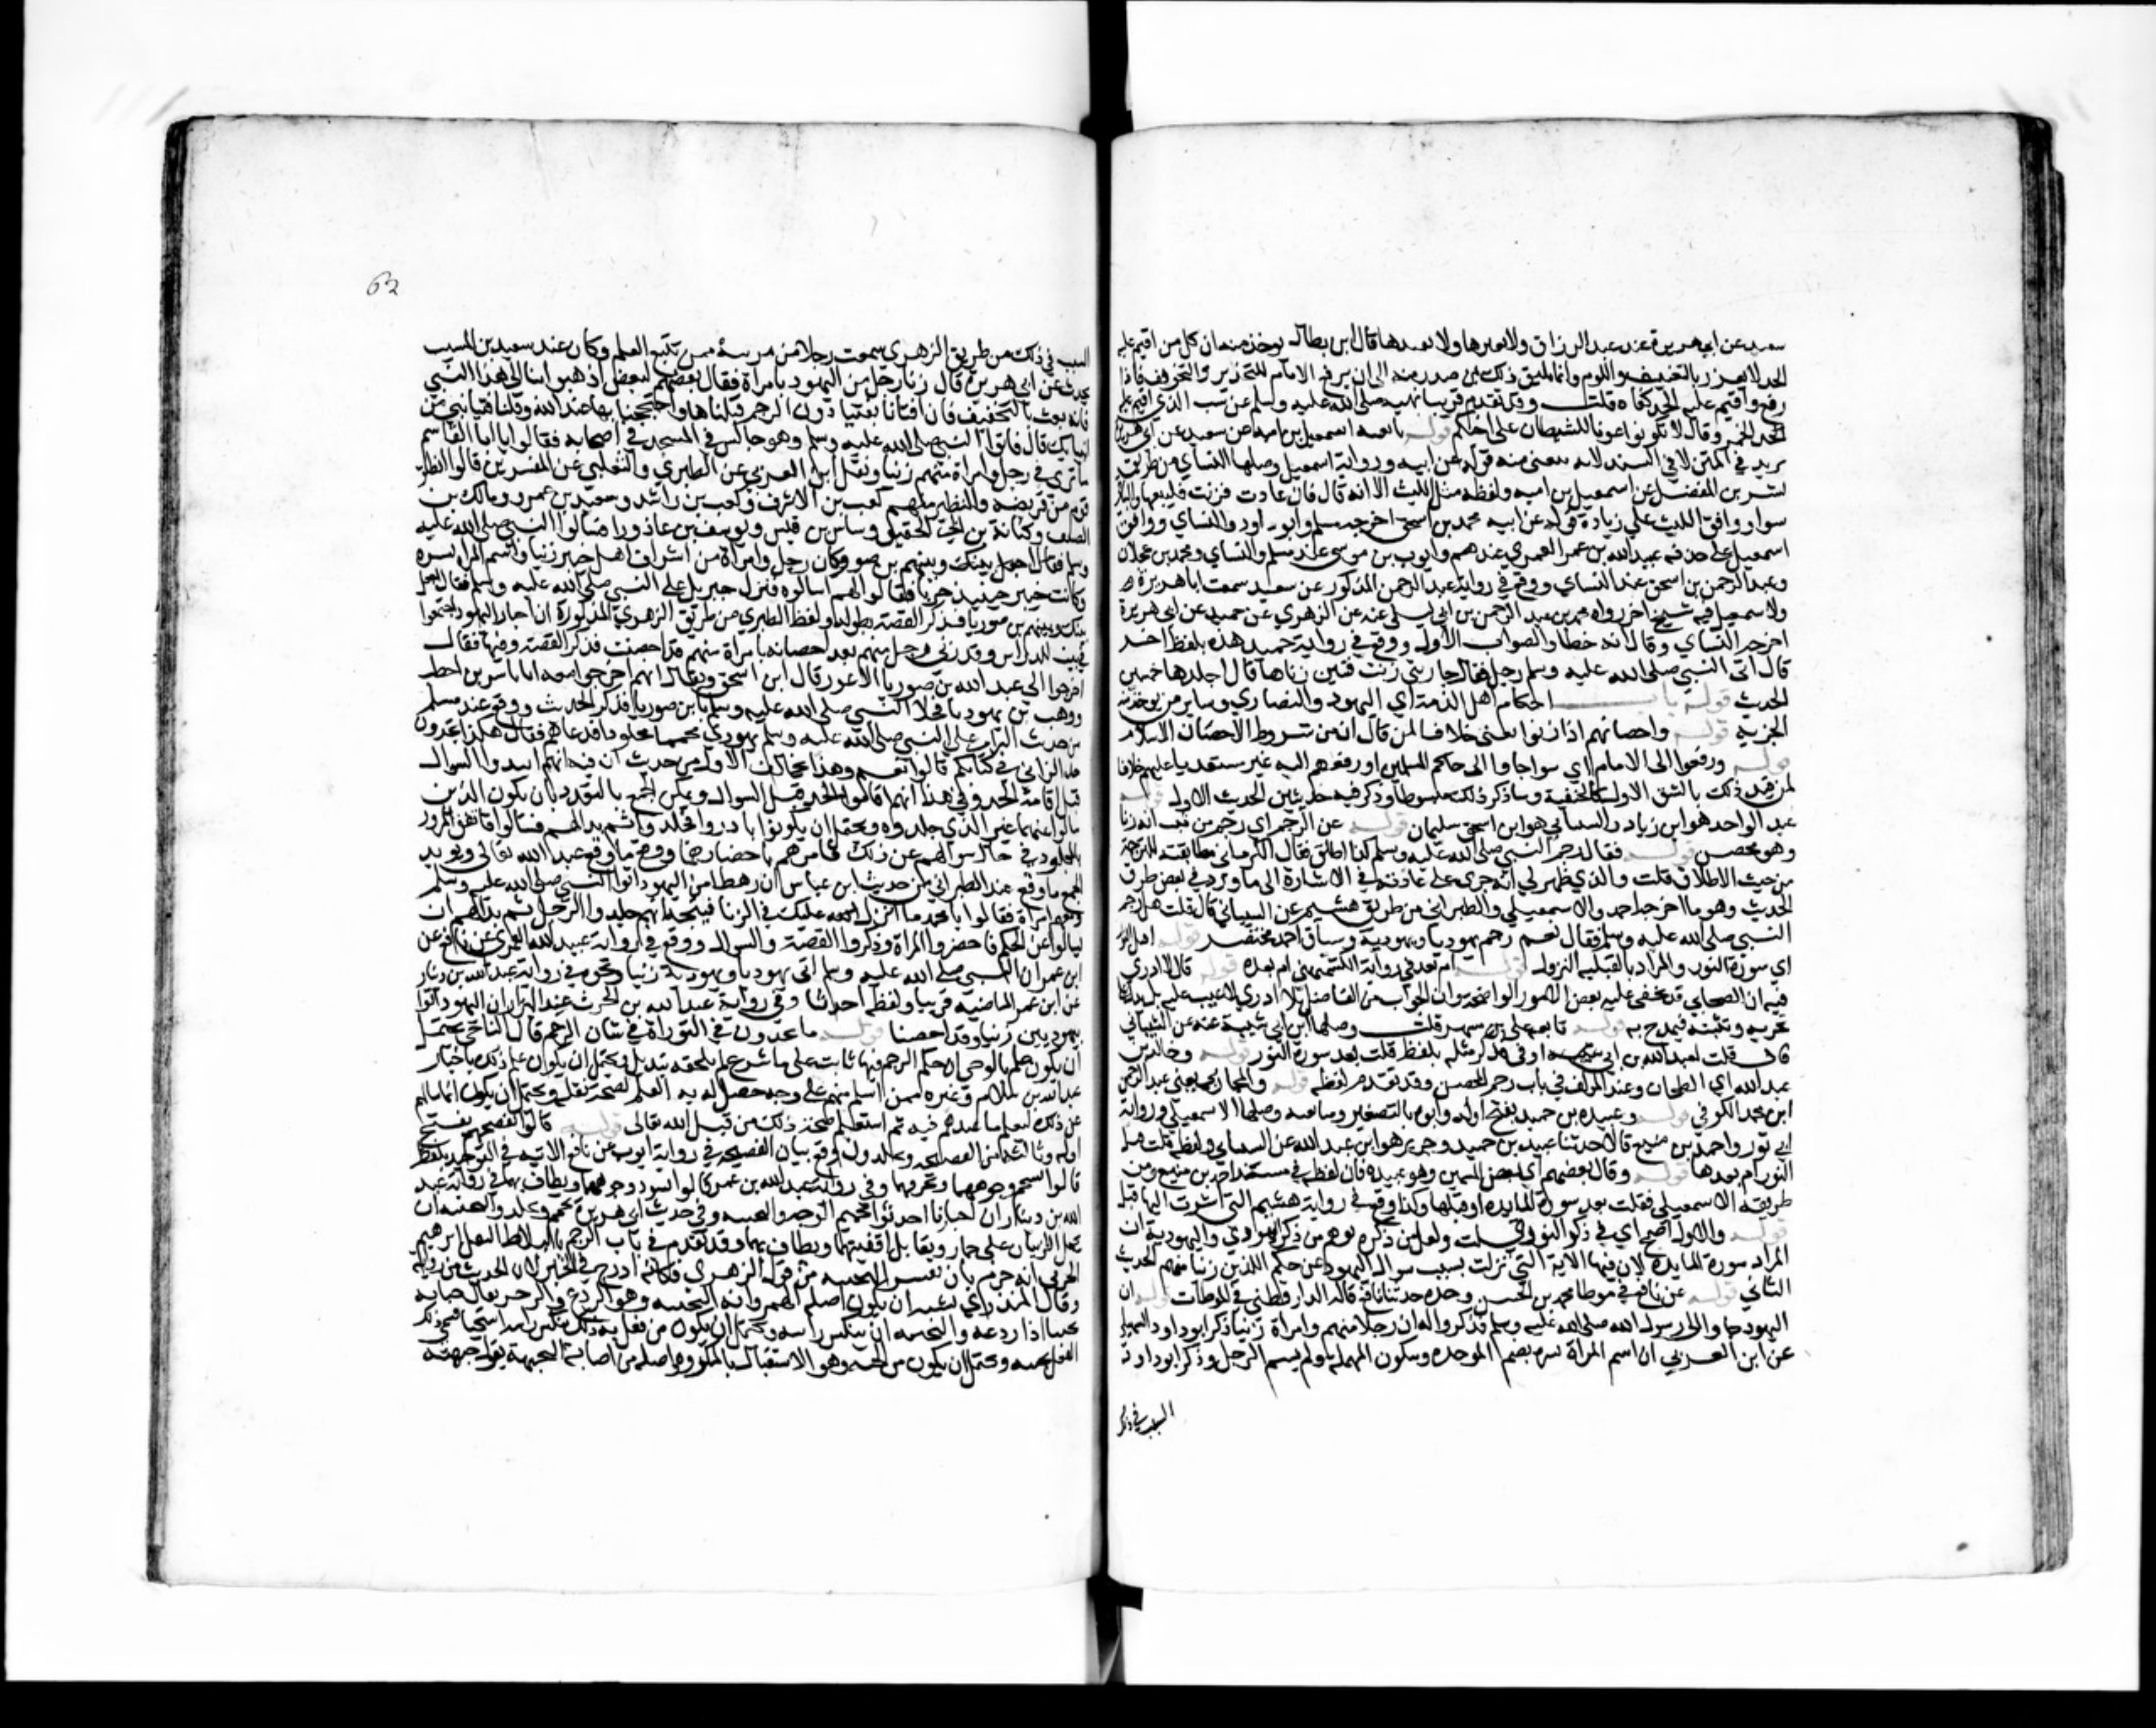 سعيد عن ابي هريرة عند عبد الرزاق ولا يعيرها ولا يفندها قال ابن بطال يوخذ منه ان كل من اقيم عليه
الحد لا يعزر بالتعنيف واللوم وانما يليق ذلك بمن صدر منه الى ان يرفع الامام للتحذير والتخويف فاذا
رفع واقيم عليه الحد كفاه قلت وقد تقدم قريبا نهيه صلى الله عليه وسلم عن سب الذي اقيم عليه
الحد الخمر وقال لا تكونوا عونا للشيطان على اخيكم قوله تابعه اسمعيل بن امية عن سعيد عن ابي هريرة
يريد في المتن لا في السند لانه نقص منه قوله عن ابيه ورواية اسمعيل وصلها النساي من طريق
بشر بن المفضل عن اسمعيل بن امية ولفظه مثل الليث الا انه قال فان عادت فزنت فليبعها والباقي
سوا ووافق الليث على زيادة قوله عن ابيه محمد بن اسحق اخرجه مسلم وابو داود والنساي ووافق
اسمعيل على حذفه عبيد الله بن عمر العمري عندهم وايوب بن موسى عند مسلم والنساي ومحمد بن عجلان
وعبد الرحمن بن اسحق عند النساي ووقع في رواية عبد الرحمن المذكور عن سعيد سمعت ابا هريرة
ولاسمعيل فيه شيخ اخر رواه محمد بن عبد الرحمن بن ابي ليلى عنه عن الزهري عن حميد عن ابي هريرة
اخرجه النساي وقال انه خطا والصواب الاول ووقع في رواية حميد هذه بلفظ اخر
قال اتى النبي صلى الله عليه وسلم رجل فقال جاريتي زنت فتبين زناها قال اجلدها خمسين
الحديث قوله باب احكام اهل الذمة اي اليهود والنصاري وساير من يوخذ منه
الجزية قوله واحصانهم اذا زنوا يعني خلافا لمن قال ان من شروط الاحصان الاسلام
قوله ورفعوا الى الامام اي سوا جاوا الى حاكم المسلمين او رفعهم اليه غيرهم مستعديا عليهم خلافا
لمن قيد ذلك بالشق الاول كالحنفية وساذكر ذلك مبسوطا وذكر فيه حديثين الحديث الاول قوله
عبد الواحد هو ابن زياد والشيباني هو ابو اسحق سليمان قوله عن الرجم اي رجم من ثبت انه زنا
وهو محصن قوله فقال رجم النبي صلى الله عليه وسلم كذا اطلق فقال الكرماني مطابقته للترجمة
من حيث الاطلاق قلت والذي ظهر لي انه جرى على عادته في الاشارة الى ما ورد في بعض طرق
الحديث وهو ما اخرجه احمد والاسمعيلي والطبراني من طريق هشيم عن الشيباني قال قلت هل رجم
النبي صلى الله عليه وسلم فقال نعم رجم يهوديا ويهودية وسياق احمد مختصر قوله اقبل النور
اي سورة النور والمراد بالقبلية النزول قوله ام بعد في رواية الكشميهني ام بعده قوله قال لا ادري
فيه ان الصحابي قد تخفى عليه بعض الامور الواضحة وان الجواب من الفاضل بلا ادري لا عيب عليه بل يدل على
تحريه وتثبته فيمدح به قوله تابعه علي بن مسهر قلت وصلها ابن ابي شيبة عنه عن الشيباني
قال قلت لعبد الله بن ابي اوفى فذكر مثله بلفظ قلت بعد سورة النور قوله وخالد بن
عبد الله اي الطحان وعند المولف في باب رجم المحصن وقد تقدم لفظه قوله والمحاربي يعني عبد الرحمن
ابن محمد الكوفي قوله وعبيدة بن حميد بفتح اوله وابوه بالتصغير ومتابعته وصلها الاسمعيلي من رواية
ابي ثور واحمد بن منيع قالا حدثنا عبيدة بن حميد وجرير هو ابن عبد الله عن الشيباني ولفظه قلت قبل
النور ام بعدها قوله وقال بعضهم اي بعض المتابعين وهو عبيدة فان لفظه في مسند احمد بن منيع ومن
طريقه الاسمعيلي فقلت بعد سورة المايدة او قبلها وكذا وقع في رواية هشيم التي اشرت اليها قبل
قوله والاول اصح اي في ذكر النور قلت ولعل من ذكره توهم من ذكر اليهودي واليهودية ان
المراد سورة المايدة لان فيها الاية التي نزلت بسبب سوال اليهود عن حكم اللذين زنيا منهم الحديث
الثاني قوله عن نافع في موطا محمد بن الحسن وحده حدثنا نافع قاله الدارقطني في الموطات قوله ان
اليهود جاوا الى رسول الله صلى الله عليه وسلم فذكروا له ان رجلا منهم وامراة زنيا ذكر ابو داود السهيلي
عن ابن العربي ان اسم المراة بسرة بضم الموحدة وسكون المهملة ولم يسم الرجل وذكر ابو داود
السبب في ذلك
62
السبب في ذلك من طريق الزهري سمعت رجلا من مزينة ممن يتتبع العلم وكان عند سعيد بن المسيب
يحدث عن ابي هريرة قال زنا رجل من اليهود بامراة فقال بعضهم لبعض اذهبوا بنا الى هذا النبي
فانه بعث بالتخفيف فان افتانا بفتيا دون الرجم قبلناها واحتججنا بها عند الله وقلنا فتيا نبي من
انبياك قال فاتوا النبي صلى الله عليه وسلم وهو جالس في المسجد في اصحابه فقالوا يا ابا القاسم
ما ترى في رجل وامراة منهم زنيا ونقل ابن العربي عن الطبري والثعلبي عن المفسرين قالوا انطلق
قوم من قريضة والنظير منهم كعب بن الاشرف وكعب بن راشد وسعيد بن عمرو ومالك بن
الصلف وكنانة بن ابي الحقيق وساس بن قيس ويوسف بن عاذورا فسالوا النبي صلى الله عليه
وسلم فقال اجعل بينك وبينهم بن صوريا وكان رجل وامراة من اشراف اهل خيبر زنيا واسم المراة بسرة
وكانت خيبر حينيذ حربا فقالوا لهم اسالوه فنزل جبريل على النبي صلى الله عليه وسلم فقال اجعل
بينك وبينهم بن صوريا فذكر القصة مطولة ولفظ الطبري من طريق الزهري المذكورة ان احبار اليهود اجتمعوا
في بيت المدراس وقد زنى رجل منهم بعد احصانه بامراة منهم قد احصنت فذكر القصة وفيها فقال
اخرجوا الي عبد الله بن صوريا الاعور قال ابن اسحق ويقال انهم اخرجوا معه ابا ياسر بن احطب
ووهب بن يهودا فخلا النبي صلى الله عليه وسلم بابن صوريا فذكر الحديث ووقع عند مسلم
من حديث البراء مر على النبي صلى الله عليه وسلم يهودي محمما مجلودا فدعاهم فقال هكذا تجدون
حد الزاني في كتابكم قالوا نعم وهذا يخالف الاول من حديث ان فيه انهم ابتدوا السوال
قبل اقامة الحد وفي هذا انهم اقاموا الحد قبل السوال ويمكن الجمع بالتعدد بان يكون الذين
سالوا عنهما غير الذي جلدوه ويحتمل ان يكونوا بادروا فجلدوا ثم بدا لهم فسالوا فاتفق المرور
بالمجلود في حال سوالهم عن ذلك فامرهم باحضارهما ووقع ما وقع عبد الله تعالى ويويد
الجمع ما وقع عند الطبراني من حديث ابن عباس ان رهطا من اليهود اتوا النبي صلى الله عليه وسلم
ومعهم امراة فقالوا يا محمد ما انزل الله عليك في الزنا فيتجه انهم جلدوا الرجل ثم بدا لهم ان
يسالوا عن الحكم فاحضروا المراة وذكروا القصة والسوال ووقع في رواية عبيد الله العمري عن نافع عن
ابن عمر ان النبي صلى الله عليه وسلم اتى بيهودي ويهودية زنيا ونحوه في رواية عبد الله بن دينار
عن ابن عمر الماضية قريبا ولفظه احدثا وفي رواية عبد الله بن الحرث عند البزار ان اليهود اتوا
بيهوديين زنيا وقد احصنا قوله ما تجدون في التوراة في شان الرجم قال الباجي يحتمل
ان يكون علم بالوحي ان حكم الرجم فيها ثابت على ما شرع لم يلحقه تبديل ويحتمل ان يكون علم ذلك باخبار
عبد الله بن سلام وغيره ممن اسلم منهم على وجه حصل له به العلم لصحة نقلهم ويحتمل ان يكون انما سالهم
عن ذلك ليعلم ما عندهم فيه ثم استعلم صحة ذلك من قبل الله تعالى قوله قالوا نفضحهم بفتح
اوله وثالثه من الفضيحة ويجلدون وقع بيان الفضيحة في رواية ايوب عن نافع الاتية في التوحيد بلفظ
قالوا نسخم وجوههما ونخزيهما وفي رواية عبيد الله بن عمر قالوا نسود وجوههما ويطاف بهما في رواية عبد
الله بن دينار ان احبارنا احدثوا تحميم الوجه والتجبيه وفي حديث ابي هريرة يحمم ويجلد والتجبيه ان
يحمل الزانيان على حمار ويقابل اقفيتهما ويطاف بهما وقد تقدم في باب الرجم بالبلاط النقل ابراهيم
الحربي انه جزم بان تفسير التجبيه من قول الزهري فكانه ادرج في الخبر لان الحديث من روايته
وقال المنذري يشبه ان يكون اصله الهمز وانه التجبيه وهو الردع والزجر يقال جباته
تجبيا اذا ردعه والتجبيه ان ينكس راسه ويحتمل ان يكون من فعل به ذلك ينكس راسه استحيا فسمي ذلك
الفعل تجبيه ويحتمل ان يكون من الجبه وهو الاستقبال بالمكروه واصله من اصابة الجبهة يقال جبهته